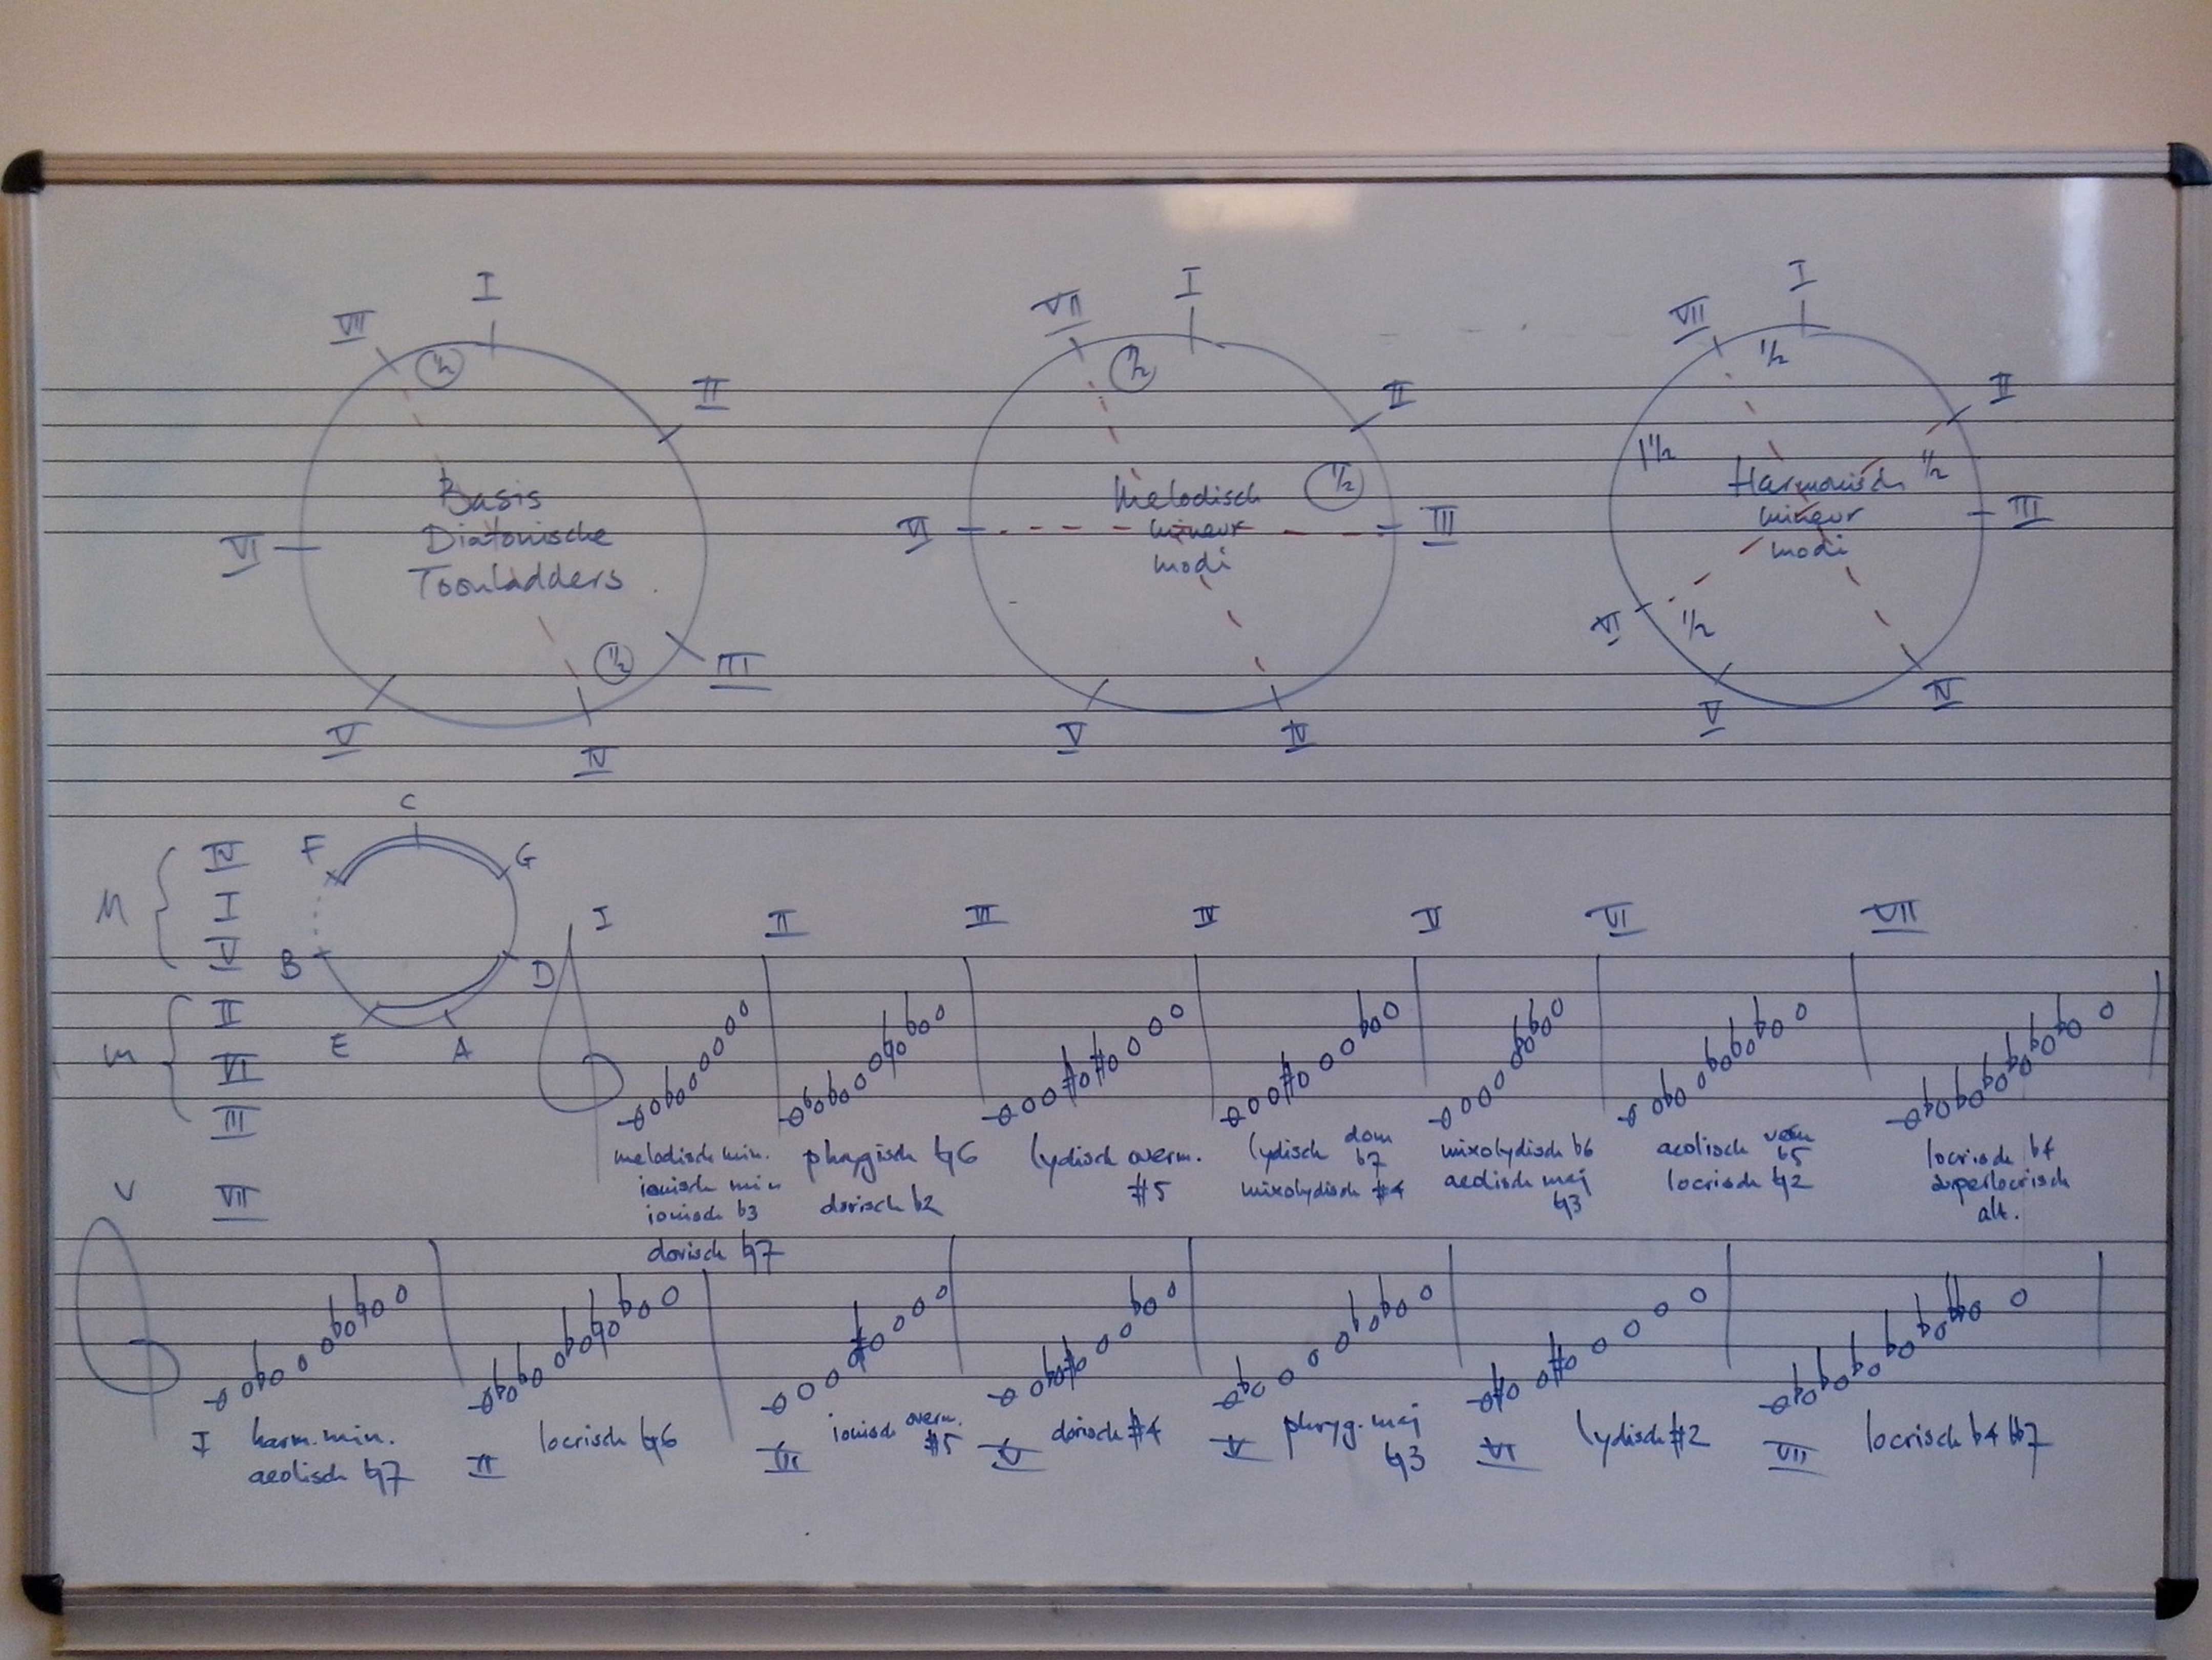 I
II
III
IV
V
VI
VII
½
½
Basis
Diatonische
Toonladders
I
II
III
IV
V
VI
VII
½
½
Melodisch
mineur
modi
I
II
III
IV
V
VI
VII
½
½
½
1½
Harmonisch
mineur
modi
M
IV
I
V
m
II
VI
III
V
VII
C
G
D
A
E
B
F
I II III IV V VI VII
melodisch min.
ionisch min
ionisch b3
dorisch ♮7
phrygisch ♮6
dorisch b2
lydisch overm.
#5
lydisch dom
b7
mixolydisch #4
mixolydisch b6
aeolisch maj
♮3
aeolisch verm
b5
locrisch ♮2
locrisch b4
superlocrisch
alt.
I harm. min.
aeolisch ♮7
II locrisch ♮6
III ionisch overm.
#5
dorisch #4
V phryg. maj
♮3
VI lydisch #2
VII locrisch b4 bb7